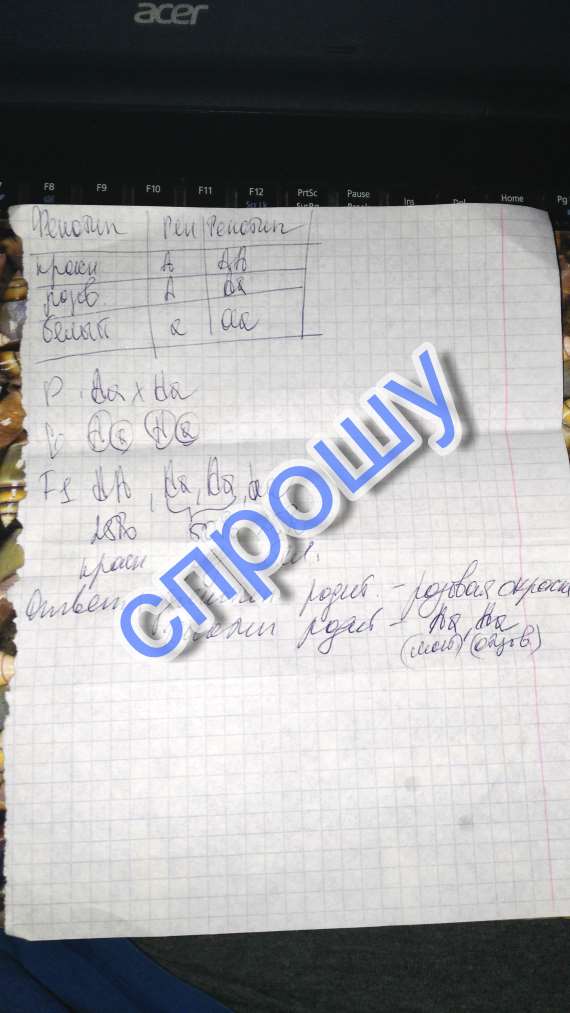 acer
F8 F9 F10 F11 F12 PrtSc Pause Ins Del Home Pg
Фенотип Ген Генотип
красн A AA
розов A Aa
белый a aa
P Aa x Aa
A a A a
F1 AA, Aa, Aa,
25%
красн
Ответ родит - розовая окраска
родит - Aa, Aa
(мат) (отцов)
спрошу